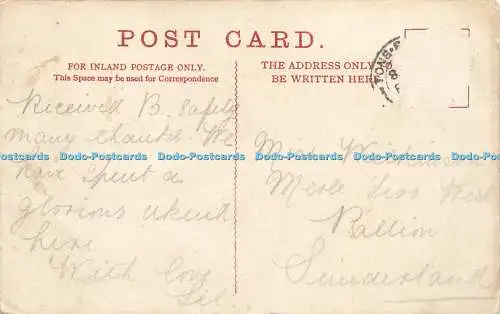 POST CARD.
FOR INLAND POSTAGE ONLY.
This Space may be used for Correspondence
THE ADDRESS ONLY
BE WRITTEN HERE
Received B. Safely
many thanks. We
have spent a
glorious
here
With love
Lil.
Dodo-Postcards Dodo-Postcards Dodo-Postcards Dodo-Postcards Dodo-Postcards
Pallion
Sunderland